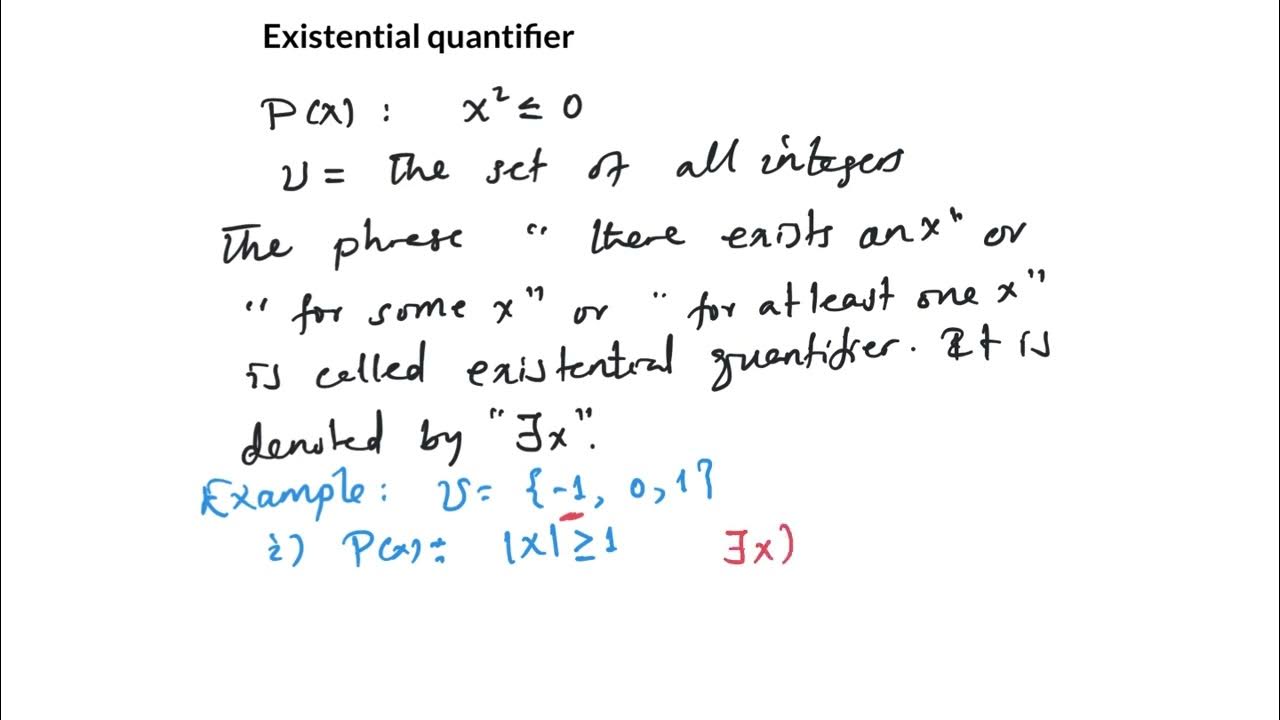 Existential quantifier
P(x) : x² ≤ 0
U = The set of all integers
The phrase "there exists an x" or
"for some x" or "for at least one x"
is called existential quantifier. It is
denoted by "∃x".
Example: U = {-1, 0, 1}
i) P(x) : |x| ≥ 1 ∃x)